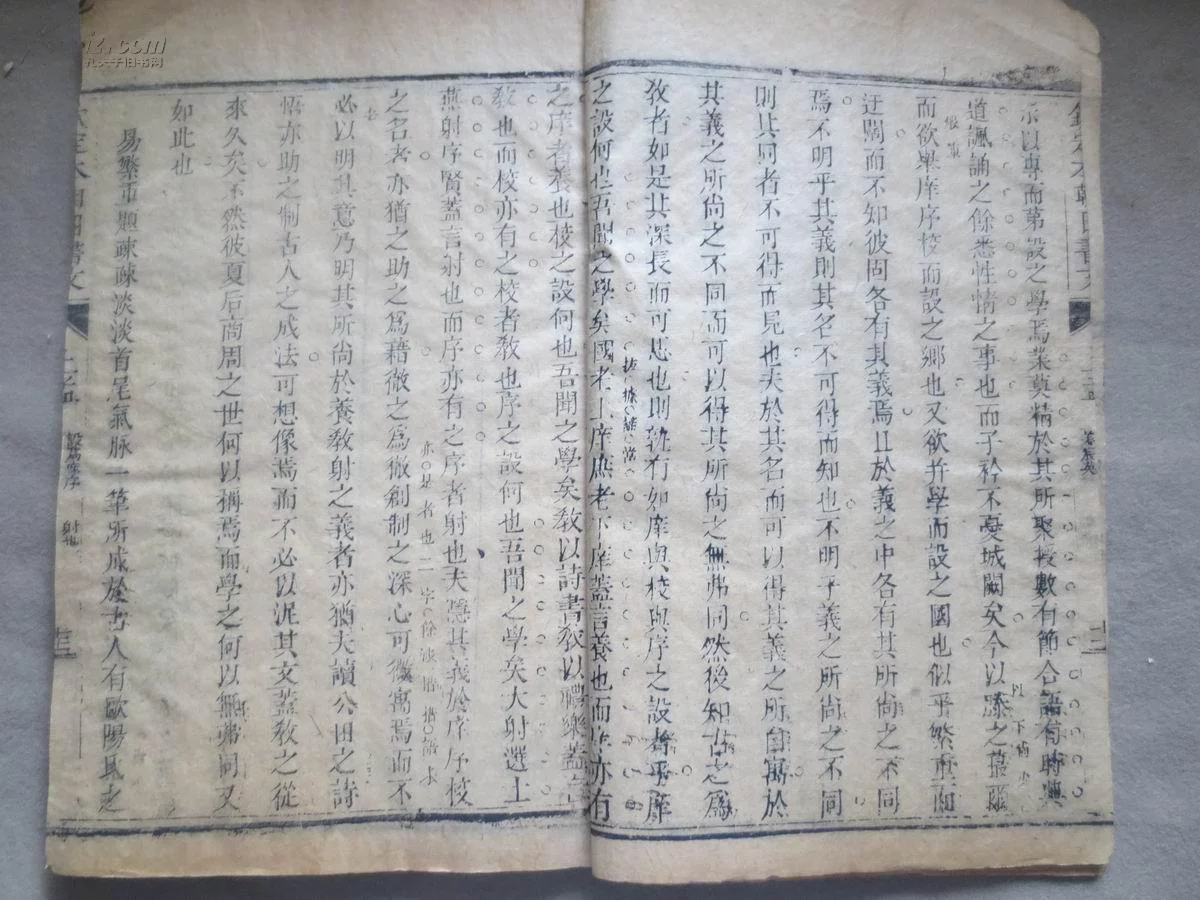 示以專而第設之學焉業莫精於其所聚授數有節合語有時與
道諷誦之餘悉性情之事也而子衿不憂城闕矣今以滕之蕞爾
而欲舉庠序校而設之鄉也又欲幷學而設之國也似乎繁重而
迂闊而不知彼固各有其義焉且於義之中各有其所尚之不同
焉不明乎其義則其名不可得而知也不明乎義之所尚之不同
則其同者不可得而見也夫於其名而可以得其義之所自寓於
其義之所尚之不同而可以得其所尚之無弗同然後知古之為
敎者如是其深長而可思也則孰有如庠與校與序之設者乎庠
之設何也吾聞之學矣國老上庠庶老下庠蓋言養也而庠亦有
之庠者養也校之設何也吾聞之學矣敎以詩書敎以禮樂蓋言
敎也而校亦有之校者敎也序之設何也吾聞之學矣大射選士
燕射序賢蓋言射也而序亦有之序者射也夫隱其義於庠序校
之名者亦猶之助之為藉徹之為徹創制之深心可微寓焉而不
必以明其意乃明其所尚於養敎射之義者亦猶夫讀公田之詩
悟亦助之制古人之成法可想像焉而不必以泥其文蓋敎之從
來久矣不然彼夏后商周之世何以稱焉而學之何以無弗同又
如此也
易繁重題疎疎淡淡首尾氣脉一筆所成於古人有歐陽氏之
設為庠序
射也